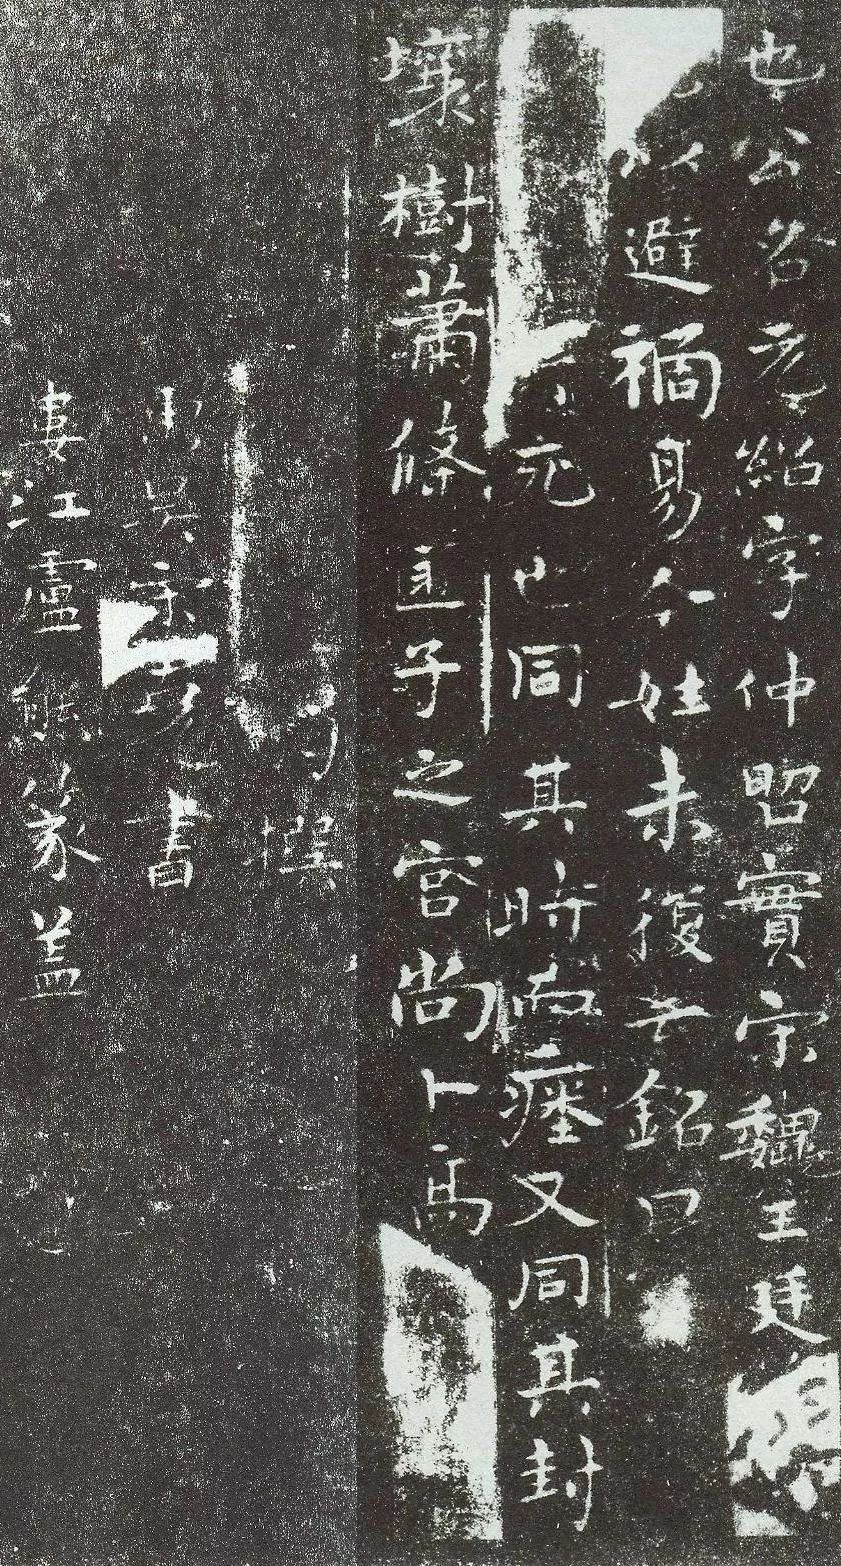 也公名元紹字仲昭實宋魏王廷
以避禍易今姓未復云銘曰
死也同其時而瘞又同其封
壤樹蕭條匽子之宮尚卜高
撰
吳宋克書
婁江盧熊篆蓋